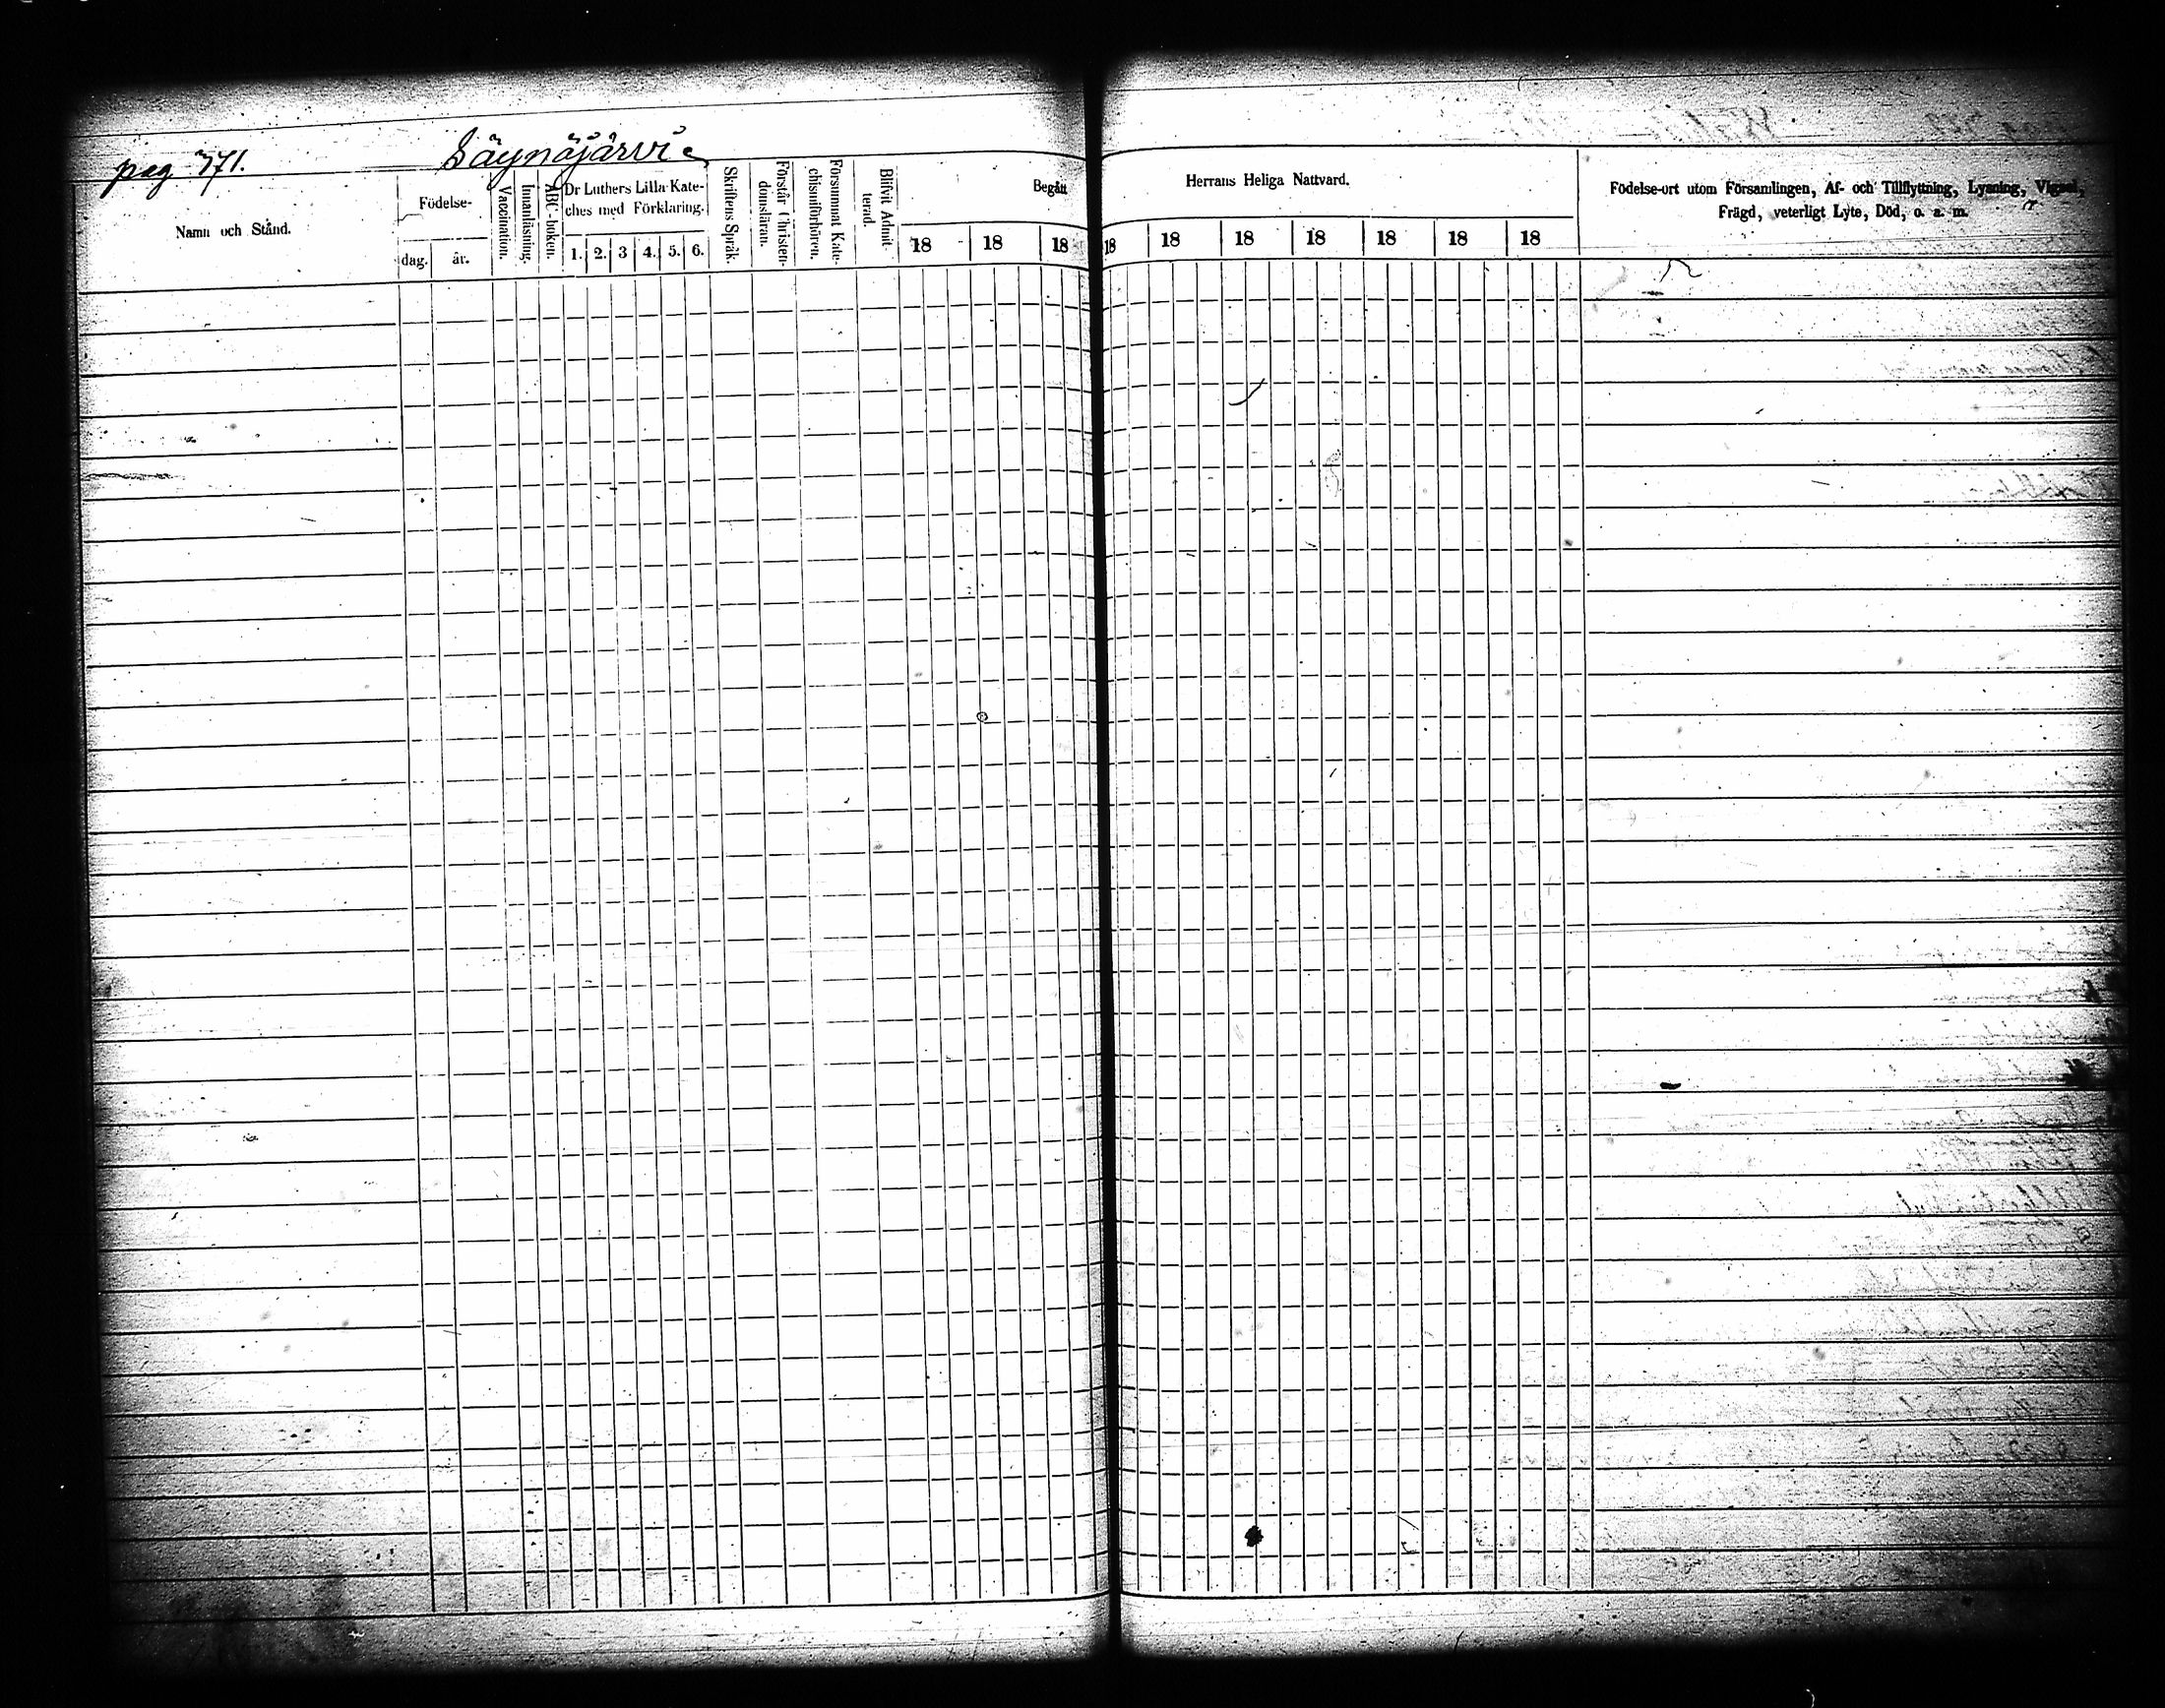 pag 771. Säynäjärvi
Namn och Stånd.
Födelse-
dag. år.
Vaccination.
Innanläsning.
ABC-boken.
Dr Luthers Lilla Kate-
ches med Förklaring.
1. 2. 3 4. 5. 6.
Skriftens Språk.
Förstår Christen-
domsläran.
Försummat Kate-
chismiförhören.
Blifvit Admit-
terad.
Begått
18 18 18
Herrans Heliga Nattvard.
18 18 18 18 18 18 18
Födelse-ort utom Församlingen, Af- och Tillflyttning, Lysning, Vigsel,
Frägd, veterligt Lyte, Död, o. a. m.